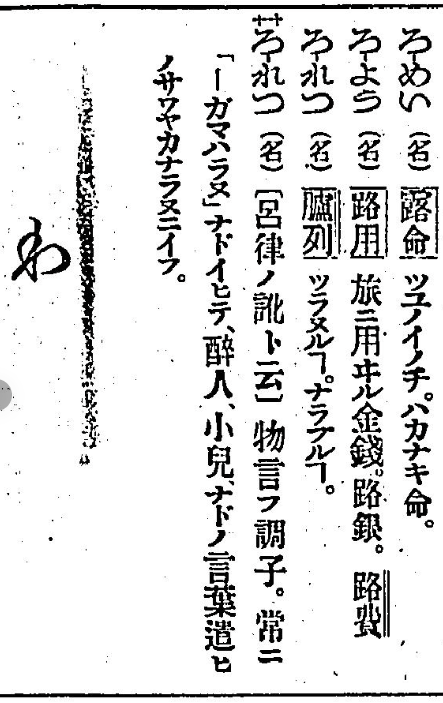 ろーめい (名) 露命 ツユノイノチ。ハカナキ命。
ろーよう (名) 路用 旅ニ用ヰル金錢。路銀。 路費
ろーれつ (名) 臚列 ツラヌルヿ。ナラブルヿ。
艹ろーれつ (名) 〔呂律ノ訛ト云〕 物言フ調子。常ニ
「―ガマハラヌ」ナドイヒテ、醉人、小兒、ナドノ言葉遣ヒ
ノサワヤカナラヌニイフ。
わ